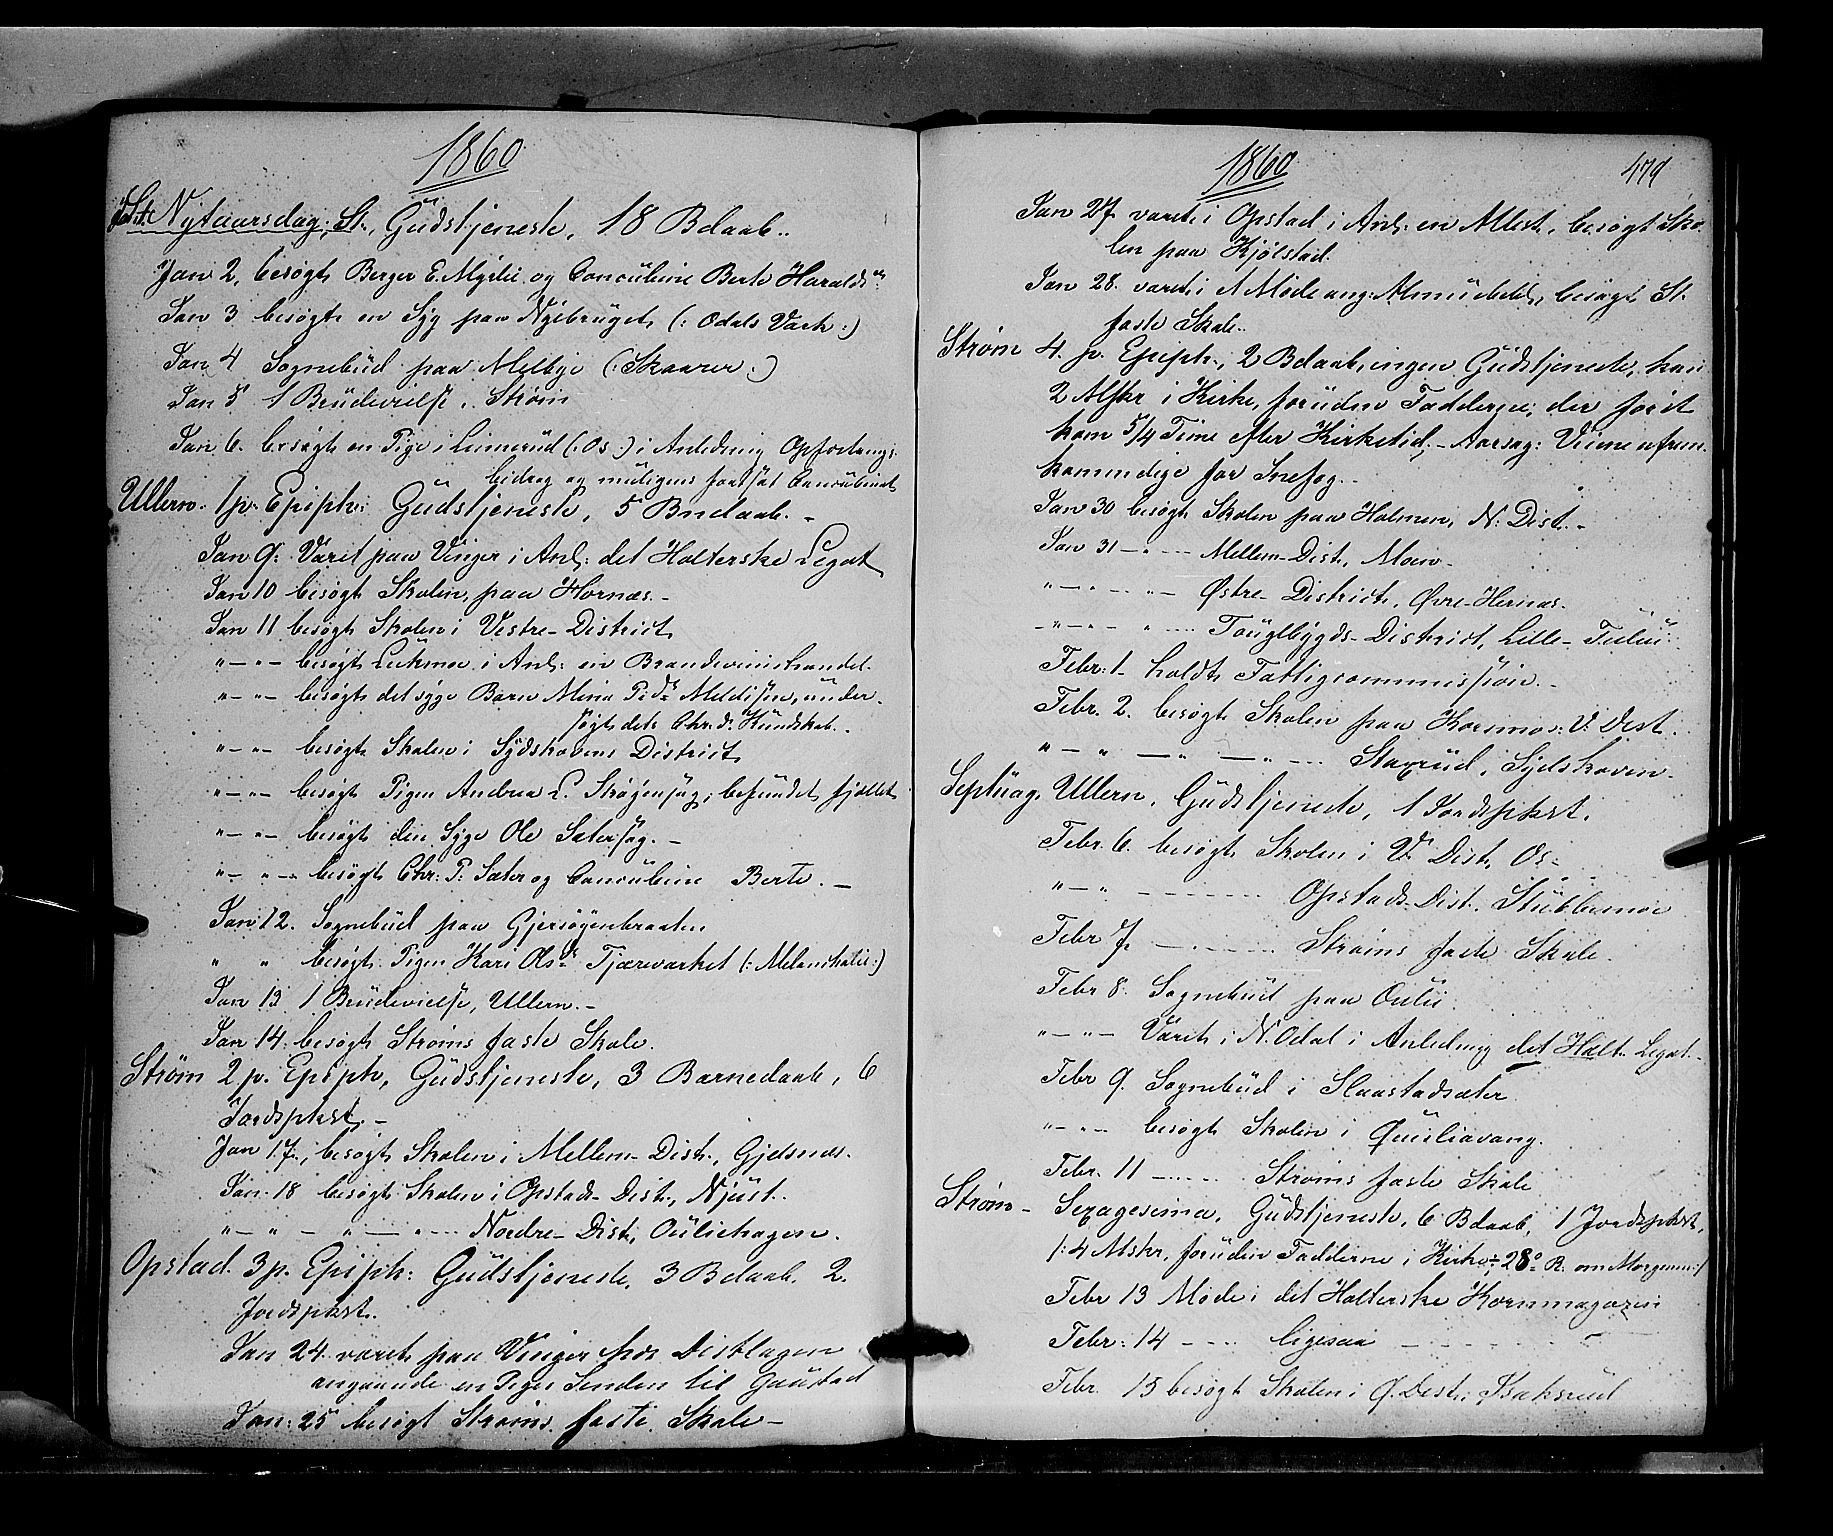 1860
Nytaarsdag, St., Gudstjeneste, 18 Bdaab..
Jan 2, besøgt Berger E. Myrlie og Concubine Berte Haraldsd.
Jan 3 besøgt en Syg paa Nyebruget (: Odals Værk :)
Jan 4 Sognebud paa Melbye (: Skaarer :)
Jan 5 1 Brudevielse, Strøm
Jan 6. besøgt en Pige i Linnerud (: Os :) i Anledning Opfostrings-
bidrag og muligens fortsat Concubinat
Ullern. 1 p. Epiph: Gudstjeneste, 5 Bndaab. -
Jan 9. Været paa Vinger i Anl: det Holterske Legat
Jan 10 besøgt Skolen, paa Hornæs. -
Jan 11 besøgt Skolen i Vestre-District
" - " - besøgt i Anl: en Brændeviinshandel.
" - " - besøgt det syge Barn Mina Pedsd. under-
søgt dets Chr.d. Kundskab. -
" - " - besøgt Skolen i Sydskovens District
" - " - besøgt Pigen Andrea L. befundet
" - " - besøgt den Syge Ole Sætersag. -
" - " - besøgt Chr: P. Sæter og Concubine Berte. -
Jan 12. Sognebud paa Gjersøyenbraaten
" " besøgt Pigen Kari Olsd. Tjæreværket (: Melancholie :)
Jan 13 1 Brudevielse, Ullern. -
Jan 14. besøgt Strøms faste Skole.
Strøm 2 p. Epiph, Gudstjeneste, 3 Barnedaab, 6
Jordspkst. -
Jan 17, besøgt Skolen i Mellem-Dist., Gjelsnæs.
Jan. 18 besøgt Skolen i Opstads-Dist., Njust.
" - " - " - " - Nordre-Dist, Ouliehagen.
Opstad. 3 p. Epiph: Gudstjeneste, 3 Bdaab. 2.
Jordspkst.
Jan 24. været paa Vinger hos Distlægen
angaaende en Piges Senden til Gaustad
Jan: 25 besøgt Strøms faste Skole -
1860
479
Jan 27 været i Opstad i Anl: en besøgt Sko-
len paa Kjølstad.
Jan 28. været i Møde ang: besøgt St.
faste Skole.
Strøm 4. p. Epiph., 2 Bdaab, ingen Gudstjeneste, kun
2 Msk. i Kirke, foruden Fadderne, der først
kom 5/4 Time efter Kirketid, - Aarsag: Veiene ufrem-
kommelige for Snefog. -
Jan 30 besøgt Skolen paa Holmen, N. Dist. -
Jan 31 - " - Mellem-Dist, Moen -
" - " - " - Østre-District, Øvre-Hernæs.
- " - " - " - Touglbygds-District, Lille-
Febr: 1. holdt Fattigcommission. -
Febr. 2. besøgt Skolen paa Kornmo: V. Dist.
" - " - " - " - Staxrud i Sydskoven -
Septuag. Ullern, Gudstjeneste, 1 Jordspkst.
Febr. 6. besøgt Skolen i V. Dist, Os -
" - " - Opstads Dist. Stubbemoe
Febr 7 - Strøms faste Skole.
Febr 8. Sognebud paa Oulii.
" - " - Været i N. Odal i Anledning det Holt. Legat -
Febr 9. Sognebud i Slaastadsæter
" - " - besøgt Skolen i
Febr. 11 - Strøms faste Skole
Strøm - Sexagesima, Gudstjeneste, 6 Bdaab, 1 Jordspkst,
/: 4 Mskr, foruden Fadderne i Kirke ÷ 28° R. om Morgenen :/
Febr 13 Møde i det Holterske Kornmagazin
Febr: 14 - ligesaa - -
Febr. 15 besøgt Skolen i Ø. Dest, Isaksrud